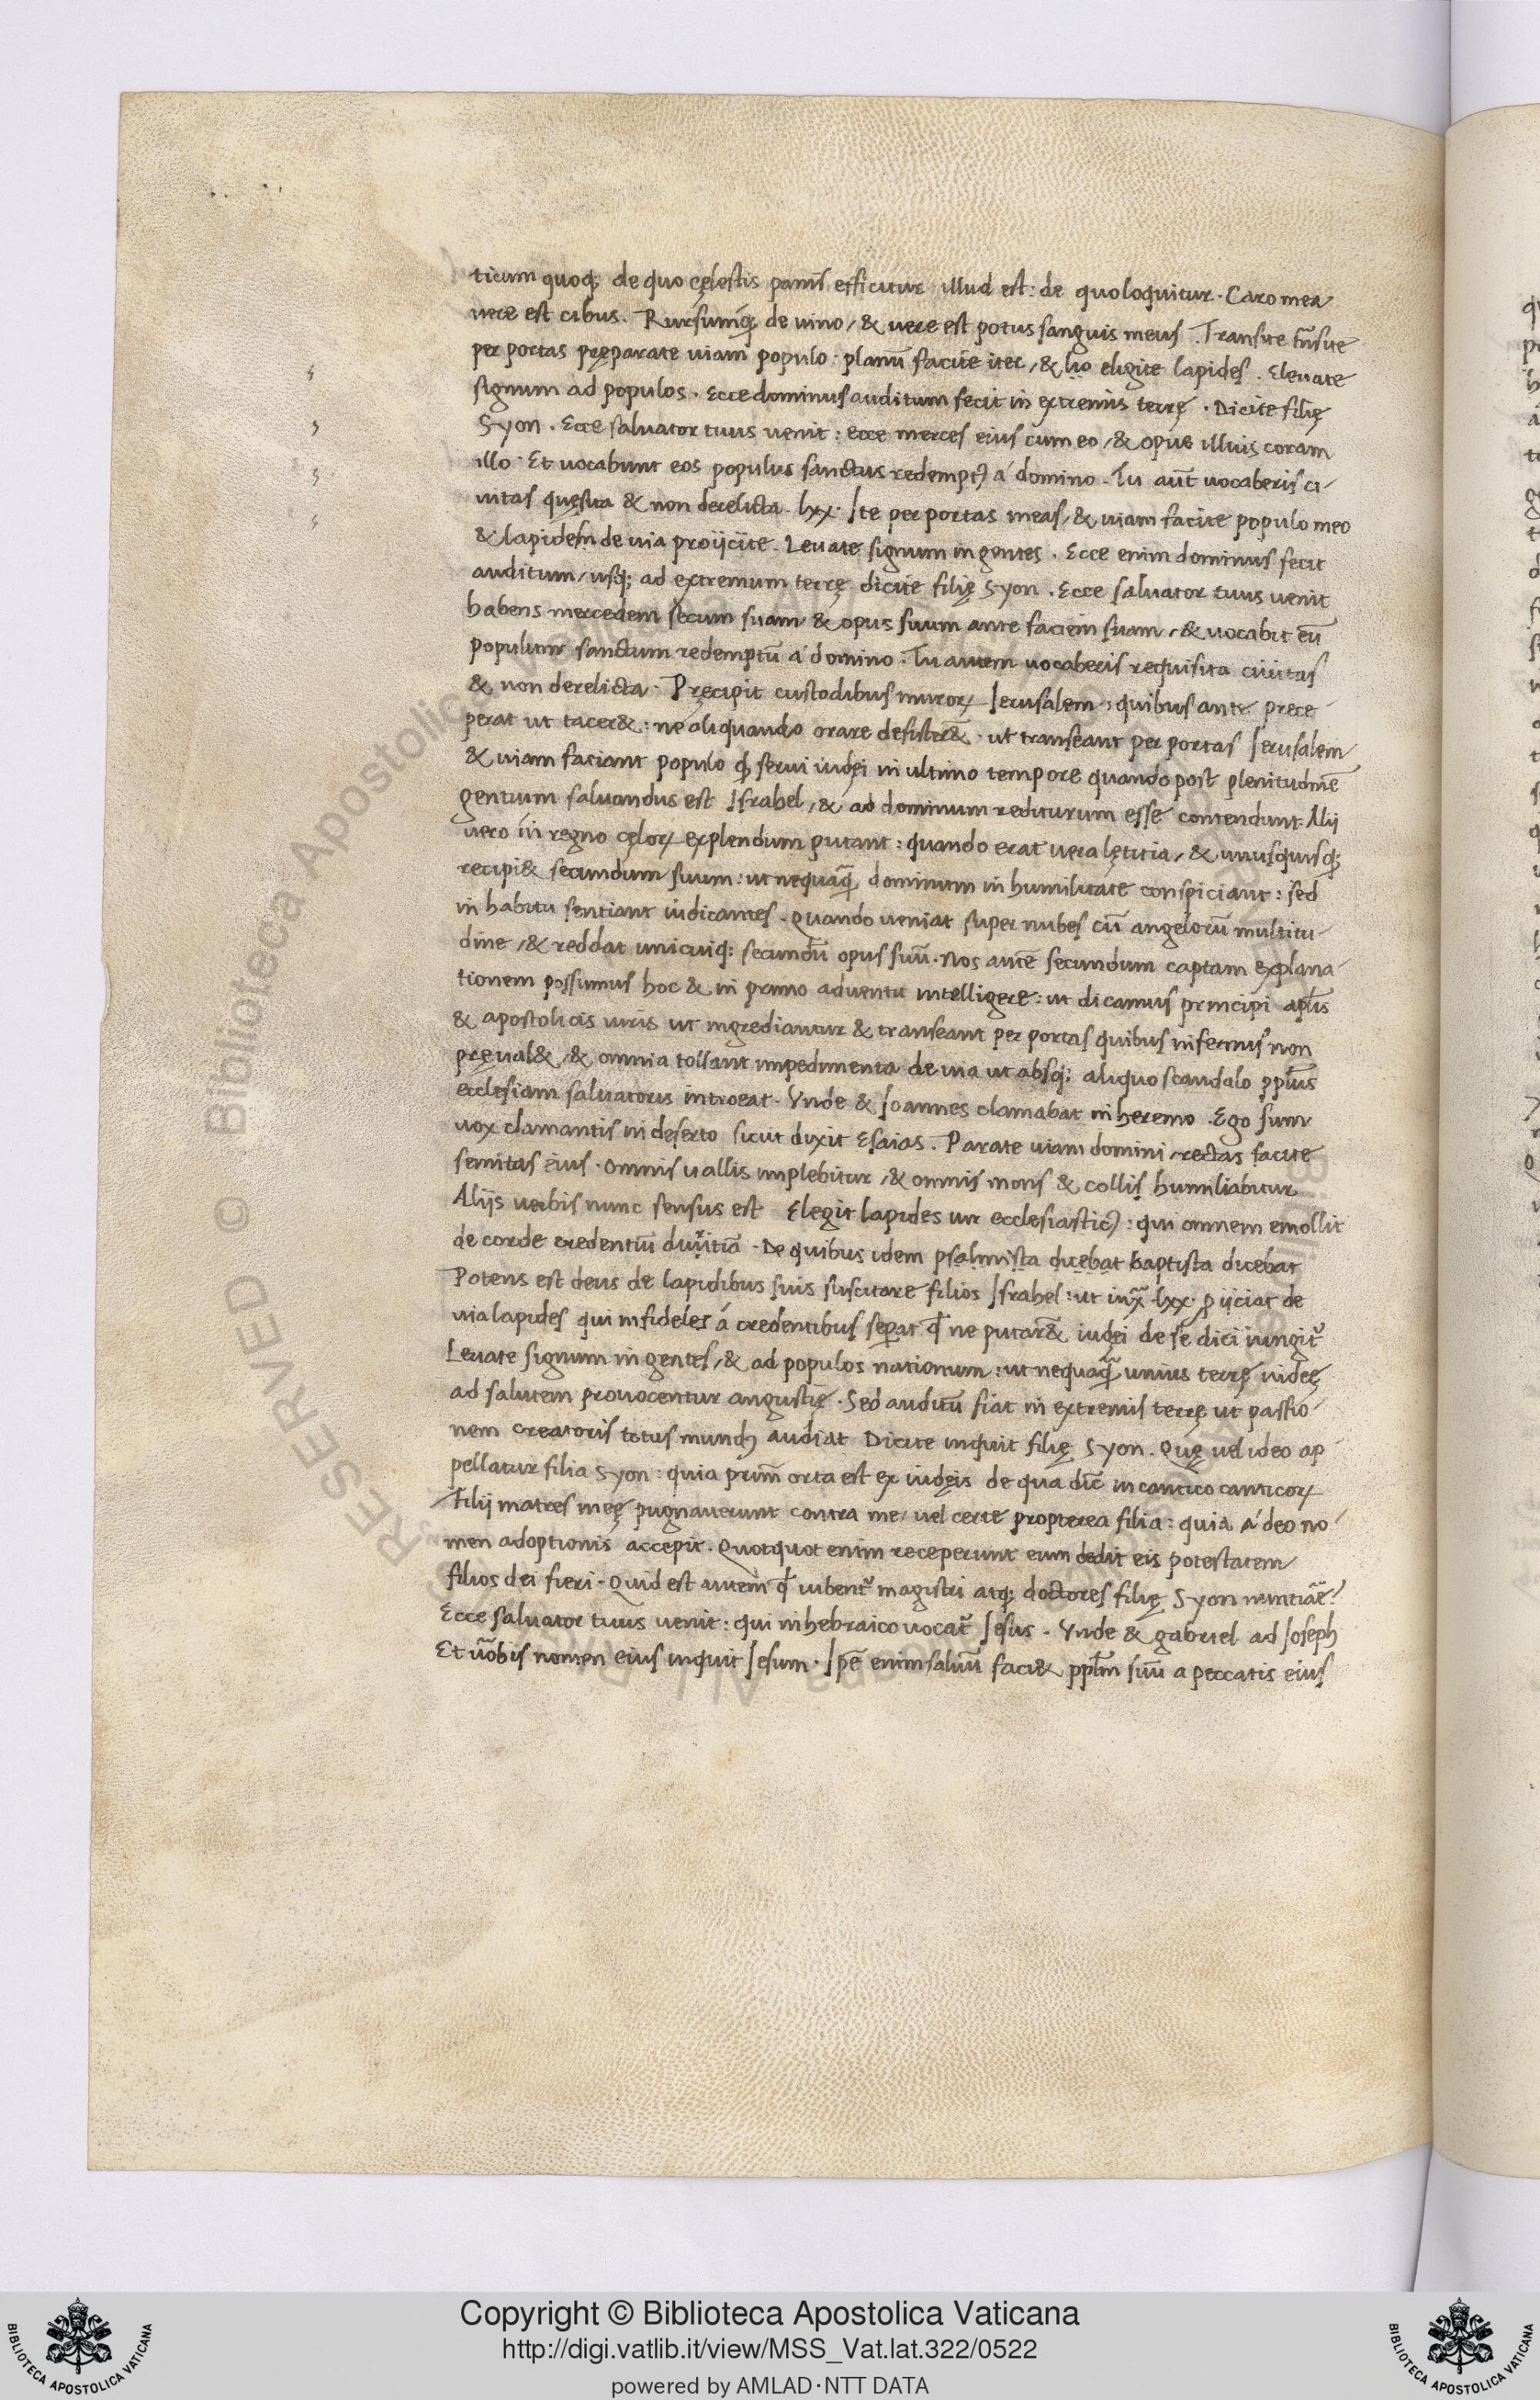 ticum quoq; de quo cęlestis panis efficitur illud est: de quo loquitur. Caro mea
uere est cibus. Rursumq; de uino, & uere est potus sanguis meus. Transite trāsite
per portas pręparate uiam populo. planū facite iter, & eligite lapides. Eleuate
signum ad populos. Ecce dominus auditum fecit in extremis terrę. Dicite filię
Syon. Ecce saluator tuus uenit: ecce merces eius cum eo, & opus illius coram
illo. Et uocabunt eos populus sanctus redempt9 á domino. Tu aūt uocaberis ci-
uitas quęsita & non derelicta. lxx. Ite per portas meas, & uiam facite populo meo
& lapidem de uia proijcite. Leuate signum in gentes. Ecce enim dominus fecit
auditum, usq; ad extremum terrę dicite filię Syon. Ecce saluator tuus uenit
habens mercedem secum suam & opus suum ante faciem suam, & uocabit eū
populum sanctum redemptū á domino. Tu autem uocaberis requisita ciuitas
& non derelicta. Pręcipit custodibus muroꝝ Ierusalem: quibus ante prece-
perat ut tacer&: ne aliquando orare desister&. ut transeant per portas Ierusalem
& uiam faciant populo ꝙ serui iudęi in ultimo tempore quando post plenitudinē
gentium saluandus est Israhel, & ad dominum rediturum esse contendunt. Alij
uero in regno cęloꝝ explendum putant: quando erat uera lętitia, & unusquisq;
recipi& secundum suum: ut nequaꝗ̄ dominum in humilitate conspiciant: sed
in habitu sentiant iudicantes. Quando ueniat super nubes cū angelorū multitu-
dine, & reddat unicuiq; secundū opus suū. Nos autē secundum captam explana-
tionem possumus hoc & in primo aduentu intelligere: ut dicamus principi apl̄is
& apostolicis uiris ut ingrediantur & transeant per portas quibus infernus non
pręual&, & omnia tollant impedimenta de uia ut absq; aliquo scandalo ppl̄us
ecclesiam saluatoris introeat. Vnde & Ioannes clamabat in heremo Ego sum
uox clamantis in deserto sicut dixit Esaias. Parate uiam domini, rectas facite
semitas eius. Omnis uallis implebitur, & omnis mons & collis humiliabitur
Alijs uerbis nunc sensus est Elegit lapides uir ecclesiastic9: qui omnem emollit
de corde credentiū duritiā. De quibus idem psalmista dicebat baptista dicebat
Potens est deus de lapidibus suis suscitare filios Israhel: ut iux̄ lxx. ꝓijciat de
uia lapides qui infideles á credentibus seꝑat ꝙ ne putar& iudęi de se dici iungit᷑
Leuate signum in gentes, & ad populos nationum: ut nequaꝗ̄ unius terrę iudeę
ad salutem prouocentur angustię. Sed auditū fiat in extremis terrę ut passio-
nem creatoris totus mund9 audiat Dicite inquit filię Syon. Quę uel ideo ap-
pellatur filia Syon: quia primū orta est ex iudęis de qua dic̄ in cantico canticoꝝ
Filij matres meę pugnauerunt contra me, uel certe propterea filia: quia á deo no-
men adoptionis accepit. Quotquot enim receperunt eum dedit eis potestatem
filios dei fieri. Quid est autem ꝙ iubent᷑ magistri atq; doctores filię Syon nuntiare?
Ecce saluator tuus uenit: qui in hebraico uocat᷑ Iesus. Vnde & gabriel ad Ioseph
Et uōbis nomen eius inquit Iesum. Ipē enim saluū faci& ppl̄m suū a peccatis eius
Copyright © Biblioteca Apostolica Vaticana
http://digi.vatlib.it/view/MSS_Vat.lat.322/0522
powered by AMLAD·NTT DATA
BIBLIOTECA APOSTOLICA VATICANA
BIBLIOTECA APOSTOLICA VATICANA